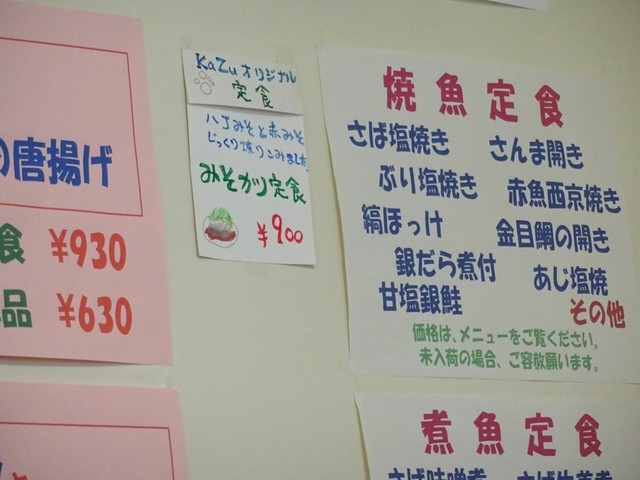 の唐揚げ
食 ¥930
品 ¥630
KaZu オリジナル
定食
八丁みそと赤みそ
じっくり煉りこみました
みそかつ定食
¥900
焼魚定食
さば塩焼き さんま開き
ぶり塩焼き 赤魚西京焼き
縞ほっけ 金目鯛の開き
銀だら煮付 あじ塩焼
甘塩銀鮭 その他
価格は、メニューをご覧ください。
未入荷の場合、ご容赦願います。
煮魚定食
さば味噌煮 さば生姜煮